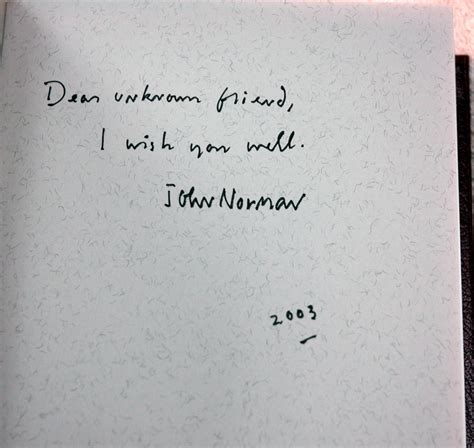 Dear unknown friend,
I wish you well.
John Norman
2003